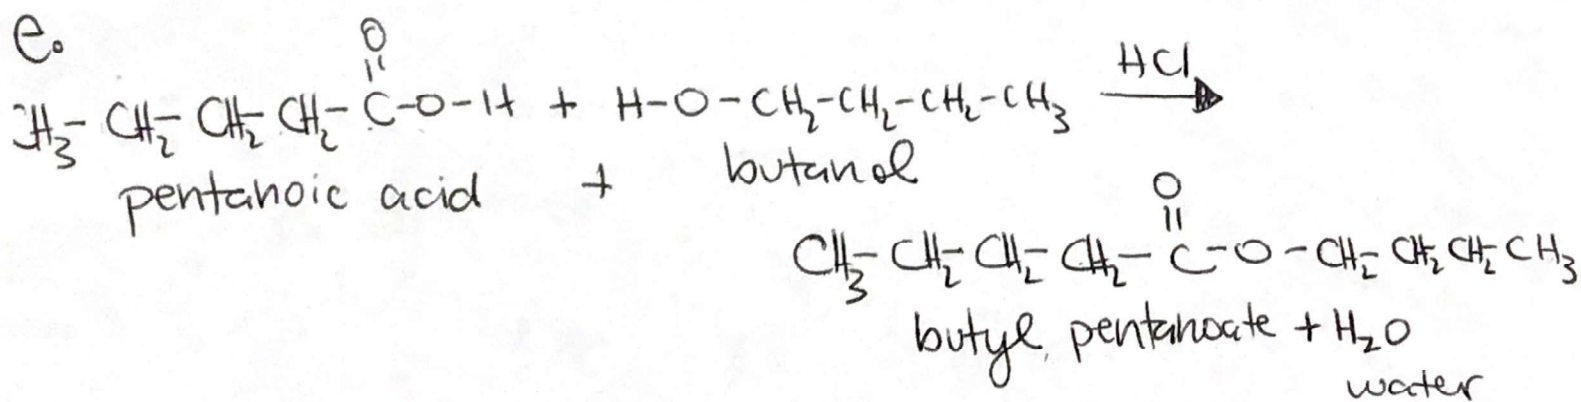 e.
O
CH₃-CH₂-CH₂-CH₂-C-O-H + H-O-CH₂-CH₂-CH₂-CH₃ HCl
pentanoic acid + butanol
O
CH₃-CH₂-CH₂-CH₂-C-O-CH₂-CH₂CH₂-CH₃
butyl pentanoate + H₂O
water